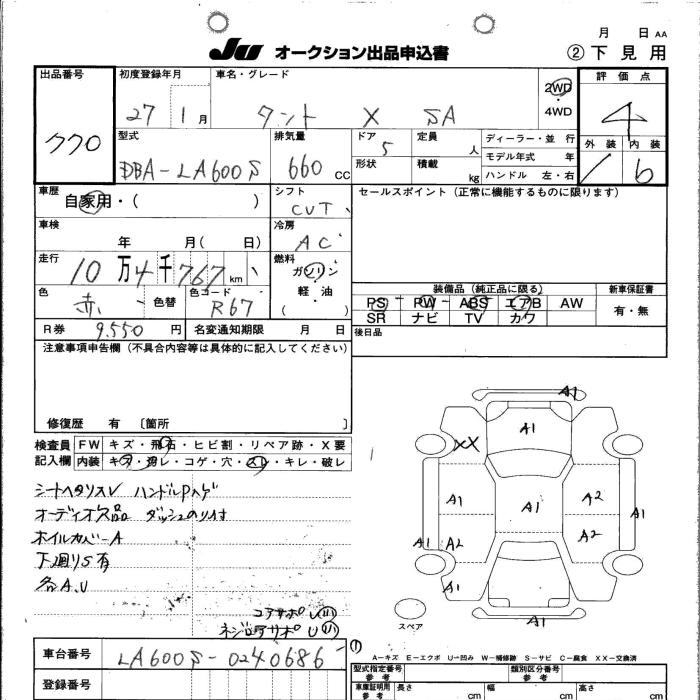 月 日 AA
JU オークション出品申込書 ②下見用
出品番号 初度登録年月 車名・グレード 評価点
770 27 1月 タント X SA 2WD・4WD 4
型式 排気量 ドア 定員 ディーラー・並行 外装 内装
DBA-LA600S 660cc 5 人 モデル年式 年 1 6
形状 積載 kg ハンドル 左・右
車歴 シフト セールスポイント(正常に機能するものに限ります)
自家用・( ) CVT
車検 冷房
年 月( 日) AC
走行 燃料
10万4千767km ガソリン
軽・油
( )
色 色替 色コード 装備品(純正品に限る) 新車保証書
赤 R67 PS PW ABS エアB AW 有・無
SR ナビ TV カワ
R券 9.550円 名変通知期限 月 日 後日品
注意事項申告欄(不具合内容等は具体的に記入してください)
修復歴 有 〔箇所 〕
検査員 FW キズ・飛石・ヒビ割・リペア跡・X要
記入欄 内装 キズ・汚レ・コゲ・穴・スレ・キレ・破レ
シートヘタリスレ ハンドルPハゲ
オーディオ欠品 ダッシュのり付
ホイルカバーA
下廻りS有
各A.U
コアサポU
A1
A1
XX
A1 A1 A2
A1 A2 A2 A1
A1
A1
スペア
A-キズ E-エクボ U-凹み W-補修跡 S-サビ C-腐食 XX-交換済
車台番号 LA600S-0240686
型式指定番号 類別区分番号
参考 参考
登録番号
車庫証明用 長さ 幅 高さ
参考 cm cm cm